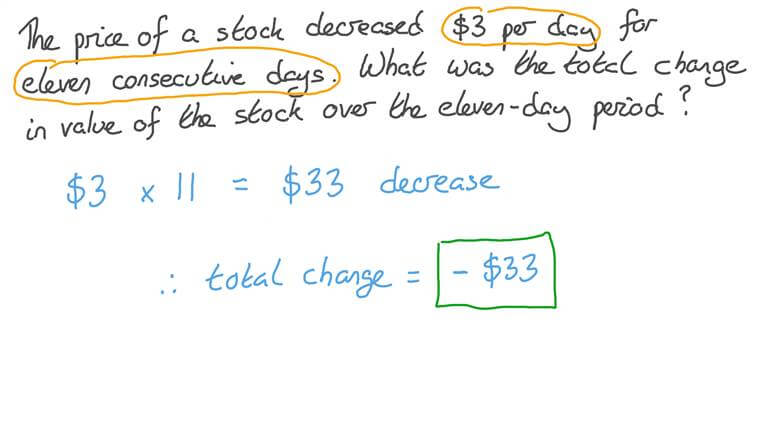 The price of a stock decreased $3 per day for
eleven consecutive days. What was the total change
in value of the stock over the eleven-day period?
$3 x 11 = $33 decrease
∴ total change = - $33